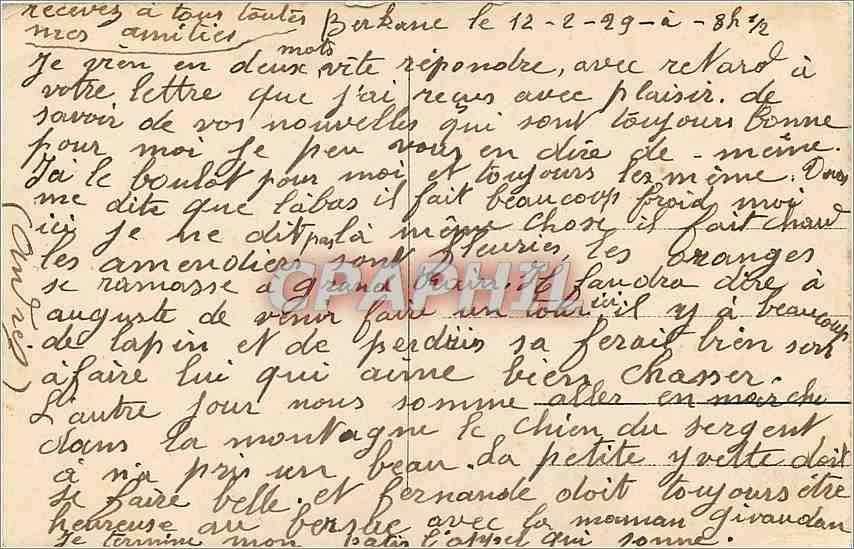 recevez à tous toutes
mes amitiés
Berkane le 12-2-29-à-8h 1/2
Je viens en deux mots, vite répondre, avec retard à
votre lettre que j'ai reçus avec plaisir. de
savoir de vos nouvelles qui sont toujours bonne
pour moi je peu vous en dire de-même.
J'ai le boulot pour moi et toujours le même. Vous
me dite que labas il fait beaucoup froid moi
ici je ne dit pas là même chose il fait chaud
les amendiers sont fleuries, les oranges
se ramasse a grand
Il faudra dire à
auguste de venir faire un tour ici il y à beaucoup
de lapin et de perdris sa ferait bien son
àfaire lui qui aime bien chasser.
L'autre jour nous somme aller en marche
dans la montagne le chien du sergent
à n'a pris un beau. La petite yvette doit
se faire belle. et fernande doit toujours être
heureuse au avec la maman givaudan
Je termine mon l'appel qui sonne.
(André)
CPAPHIL